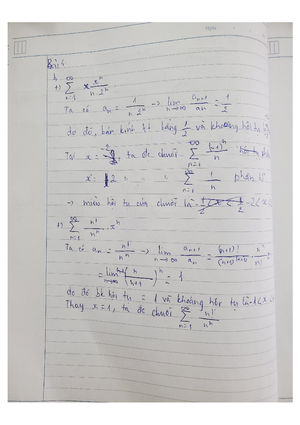 Bài 4
b.
1) ∑_{n=1}^{∞} x^n / n·2^n
Ta có a_n = 1 / n·2^n → lim_{n→∞} a_{n+1} / a_n = 1/2
do đó, bán kính ht bằng 1/2 và khoảng hội tụ
Tại x = -2, ta đc chuỗi ∑_{n=1}^{∞} (-1)^n / n
x = 2 ∑_{n=1}^{∞} 1/n phân kì
→ miền hội tụ của chuỗi là -2 ≤ x <
∑_{n=1}^{∞} n! / n^n · x^n
Ta có a_n = n! / n^n → lim_{n→∞} a_{n+1} / a_n = (n+1)! / (n+1)^{(n+1)} · n^n / n!
= lim_{n→∞} ( n / n+1 )^n = 1
do đó bk hội tụ = 1 và khoảng hội tụ là -1 <
Thay x = 1, ta đc chuỗi ∑_{n=1}^{∞} n! / n^n